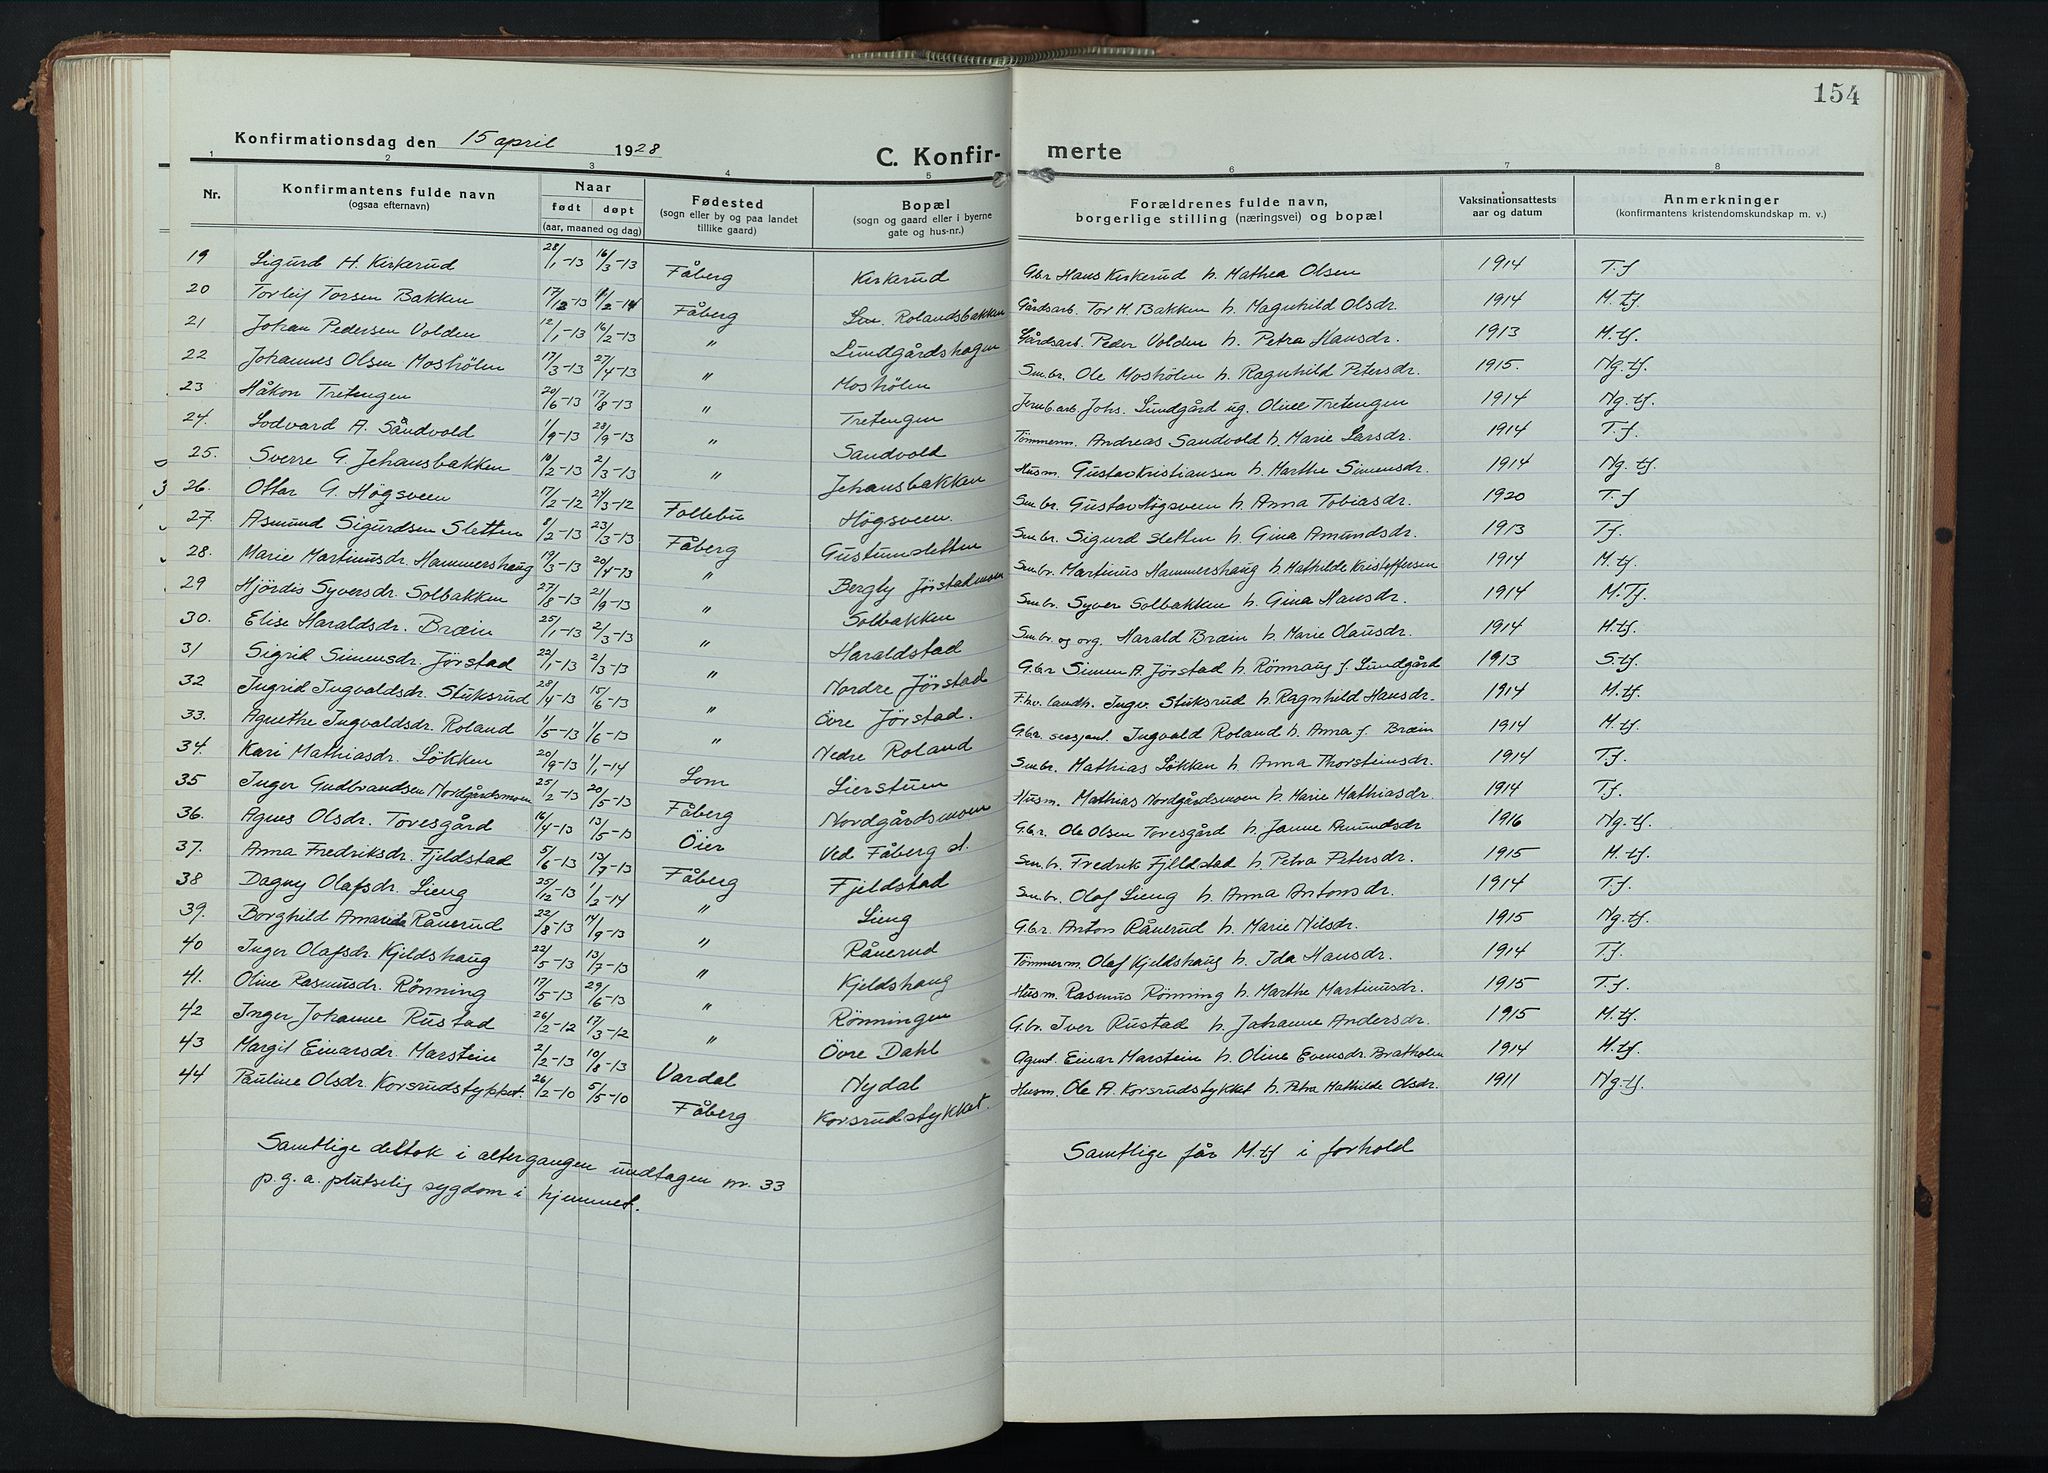 154
Konfirmationsdag den 15 april 1928
C. Konfir- merte
1 2 3 4 5 6 7 8
Nr. Konfirmantens fulde navn (ogsaa efternavn) Naar født døpt (aar, maaned og dag) Fødested (sogn eller by og paa landet tillike gaard) Bopæl (sogn og gaard eller i byerne gate og hus-nr.) Forældrenes fulde navn, borgerlige stilling (næringsvei) og bopæl Vaksinationsattests aar og datum Anmerkninger (konfirmantens kristendomskundskap m. v.)
19 Sigurd H. Kirkerud 28/1-13 16/3-13 Fåberg Kirkerud Gbr Hans Kirkerud h. Mathea Olsen 1914 T.f
20 Torleif Torsen Bakken 17/12-13 /2-14 Fåberg Rolandsbakken Gårdsarb. Tor M. Bakken h. Magnhild Olsdr. 1914 M.tf
21 Johan Pedersen Volden 12/1-13 16/2-13 " Lundgårdshagen Gårdsarb. Peder Volden h. Petra Hansdr. 1913 M.tf.
22 Johannes Olsen Moshölen 17/3-13 27/4-13 " Moshölen Sm.br. Ole Moshölen h. Ragnhild Petersdr. 1915. Ng.tf.
23 Håkon Tretengen 20/6-13 17/8-13 " Tretengen Jernb.arb. Johs. Lundgård ug. Oline Tretengen 1914 Ng.tf.
24. Lodvard A. Sandvold 1/9-13 28/9-13 " Sandvold Tömmerm. Andreas Sandvold h. Marie Larsdr. 1914 T.f
25. Sverre G. Jehansbakken 10/2-13 2/3-13 " Jehansbakken Husm. Gustav Kristiansen h. Marthe Simensdr. 1914 Ng.tf
26. Ottar G. Högsveen 17/2-12 24/3-12 Follebu Högsveen. Sm.br. Gustav Högsveen h. Anna Tobiasdr. 1920 T.f
27. Asmund Sigurdsen Sletten 8/2-13 23/3-13 Fåberg Gustumsletten Sm.br. Sigurd Sletten h. Gina Amundsdr. 1913 Tf.
28. Marie Martinusdr. Hammershaug 19/3-13 20/4-13 " Bergly Jörstadmoen Sm.br. Martinus Hammershaug h. Mathilde Kristoffersen 1914 M.tf.
29 Hjördis Syversdr. Solbakken 27/8-13 21/9-13 " Solbakken Sm.br. Syver Solbakken h. Gina Hansdr. 1914 M.Tf.
30. Elise Haraldsdr. Bræin 25/1-13 2/3-13 " Haraldstad Sm.br. og org. Harald Bræin h. Marie Olausdr. 1914 M.tf.
31 Sigrid Simensdr. Jörstad 22/1-13 2/3-13 " Nordre Jörstad G.br Simen A. Jörstad h. Rönnaug f. Lundgård 1913 S.tf.
32 Ingrid Ingvaldsdr. Stuksrud 28/4-13 15/6-13 " Övre Jörstad. F.hv. landh. Ingv. Stuksrud h. Ragnhild Hansdr. 1914 M.tf.
33. Agnethe Ingvaldsdr. Roland 1/5-13 1/6-13 " Nedre Roland G.br sersjant. Ingvald Roland h. Anna f. Bræin 1914 M.tf.
34. Kari Mathiasdr. Lökken 20/9-13 1/1-14 Lom Lierstuen Sm.br. Mathias Lökken h. Anna Thorsteinsdr. 1914 T.f.
35 Inger Gudbrandsen Nordgårdsmoen 25/2-13 20/5-13 Fåberg Nordgårdsmoen Husm. Mathias Nordgårdsmoen h. Marie Mathiasdr. 1914 T.f.
36. Agnes Olsdr. Toresgård 16/4-13 13/5-13 Öier Ved Fåberg st. G.br. Ole Olsen Toresgård h. Janne Amundsdr 1916 Ng.tf.
37. Anna Fredriksdr. Fjeldstad 5/6-13 13/7-13 Fåberg Fjeldstad Sm.br. Fredrik Fjeldstad h. Petra Petersdr. 1915 M.tf.
38 Dagny Olafsdr. Lieng 25/12-13 1/2-14 " Lieng Sm.br. Olaf Lieng h. Anna Antonsdr. 1914 T.f.
39. Borghild Amanda Rånerud 22/8-13 14/9-13 " Rånerud G.br. Anton Rånerud h. Marie Nilsdr. 1915 Ng.tf.
40 Inger Olafsdr. Kjeldshaug 22/5-13 13/7-13 " Kjeldshaug Tömmerm. Olaf Kjeldshaug h. Ida Hansdr. 1914 T.f.
41. Oline Rasmusdr. Rönning 17/5-13 29/6-13 " Rönningen Husm. Rasmus Rönning h. Marthe Martinusdr. 1915 T.f.
42 Inger Johanne Rustad 26/2-12 17/3-12 " Övre Dahl G.br. Iver Rustad h. Johanne Andersdr. 1915 M.tf.
43 Margit Einarsdr. Marstein 2/2-13 10/8-13 Vardal Nydal Agent. Einar Marstein h. Oline Evensdr. Bratholm 1914 M.tf.
44 Pauline Olsdr. Korsrudstykket. 26/2-10 5/5-10 Fåberg Korsrudstykket. Husm. Ole A. Korsrudstykket h. Petra Mathilde Olsdr. 1911 Ng-tf.
Samtlige deltok i altergangen undtagen nr. 33
p.g.a. plutselig sygdom i hjemmet.
Samtlige får M.tf i forhold